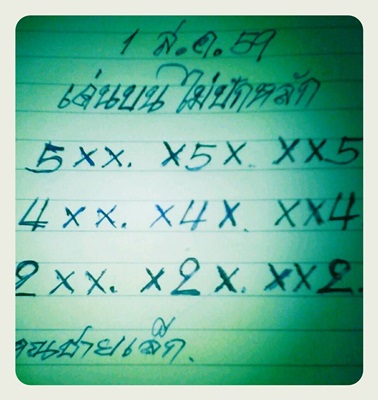 1 ส.ค. 59
เด่นบน ไม่ปักหลัก
5xx. x5x. xx5
4xx. x4x. xx4
2xx. x2x. xx2.
ชายเล็ก.